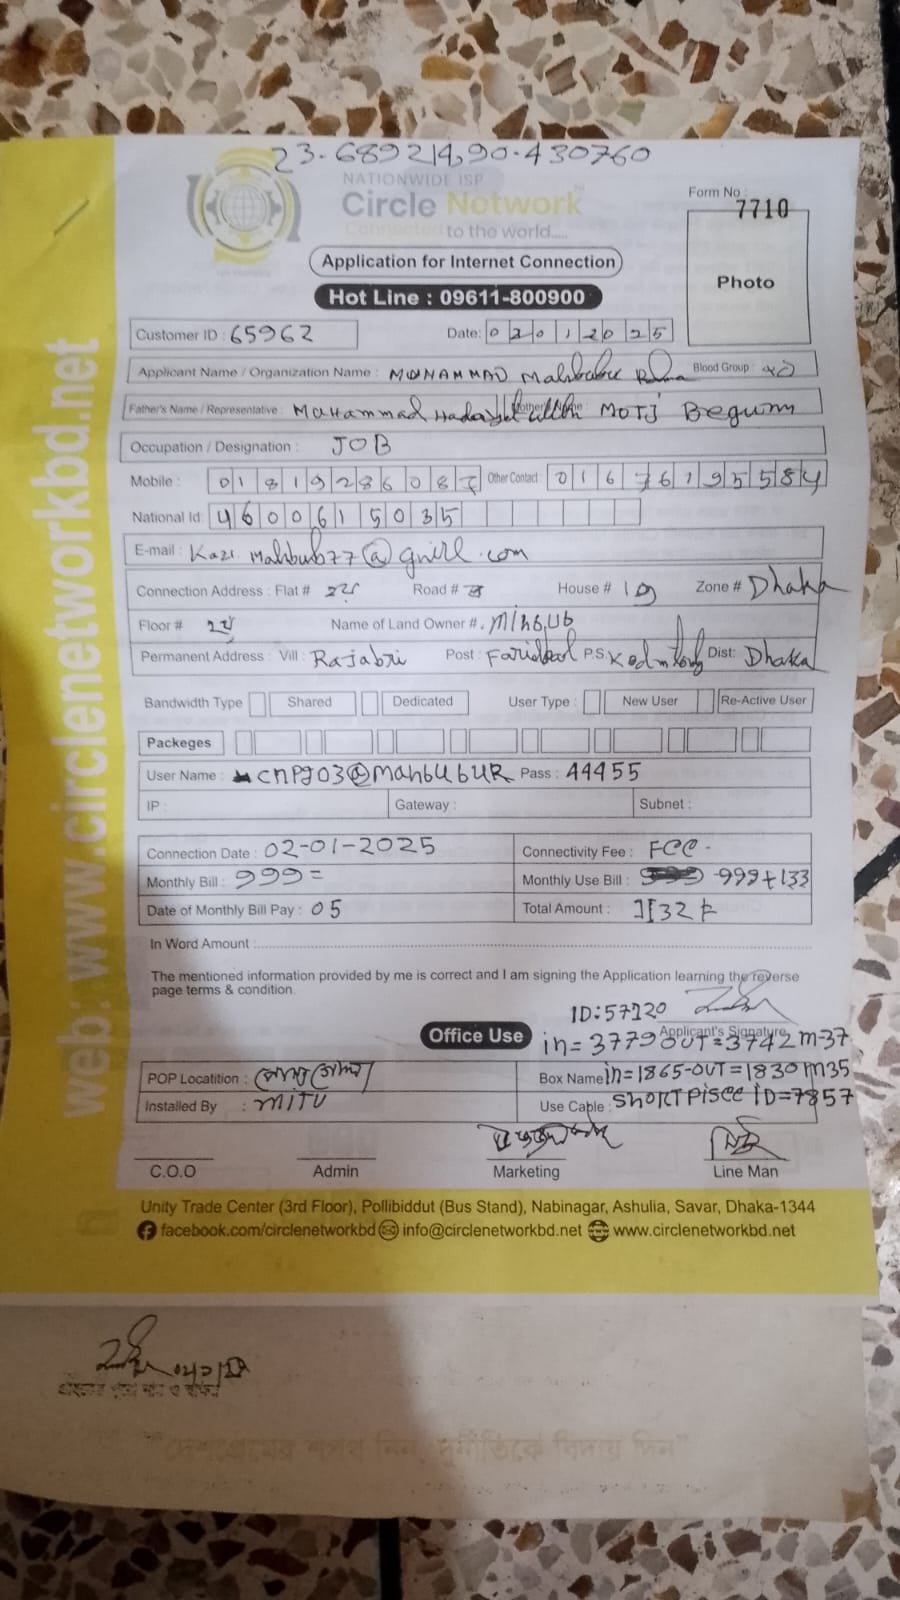 23.689214,90.430760
NATIONWIDE ISP
Circle Network
Connected to the world.....
Form No :
7710
Application for Internet Connection
Photo
Hot Line : 09611-800900
Customer ID : 65962
Date: 02012025
Applicant Name / Organization Name :
Blood Group :
Father's Name / Representative : Muhammad Begum
Occupation / Designation : JOB
Mobile : Other Contact : 01676195584
National Id: 4600615035
E-mail :
Connection Address : Flat # Road # House # 19 Zone # Dhaka
Floor # Name of Land Owner #.
Permanent Address : Vill : Rajabri Post : P.S Dist: Dhaka
Bandwidth Type Shared Dedicated User Type : New User Re-Active User
Packeges
User Name : Pass : 44455
IP : Gateway : Subnet :
Connection Date : 02-01-2025 Connectivity Fee :
Monthly Bill : 999= Monthly Use Bill : 999+133
Date of Monthly Bill Pay : 05 Total Amount : 1132
In Word Amount :
The mentioned information provided by me is correct and I am signing the Application learning the reverse
page terms & condition.
ID:57120
Applicant's Signature
Office Use
in= 3779 OUT=3742 m-37
POP Locatition : Box Name in=1865-OUT=1830 m35
Installed By : MITU Use Cable : SHORT PISCE ID=7857
C.O.O Admin Marketing Line Man
Unity Trade Center (3rd Floor), Pollibiddut (Bus Stand), Nabinagar, Ashulia, Savar, Dhaka-1344
facebook.com/circlenetworkbd info@circlenetworkbd.net www.circlenetworkbd.net
web: www.circlenetworkbd.net
"দেশপ্রেমের শপথ নিন, দুর্নীতিকে বিদায় দিন"